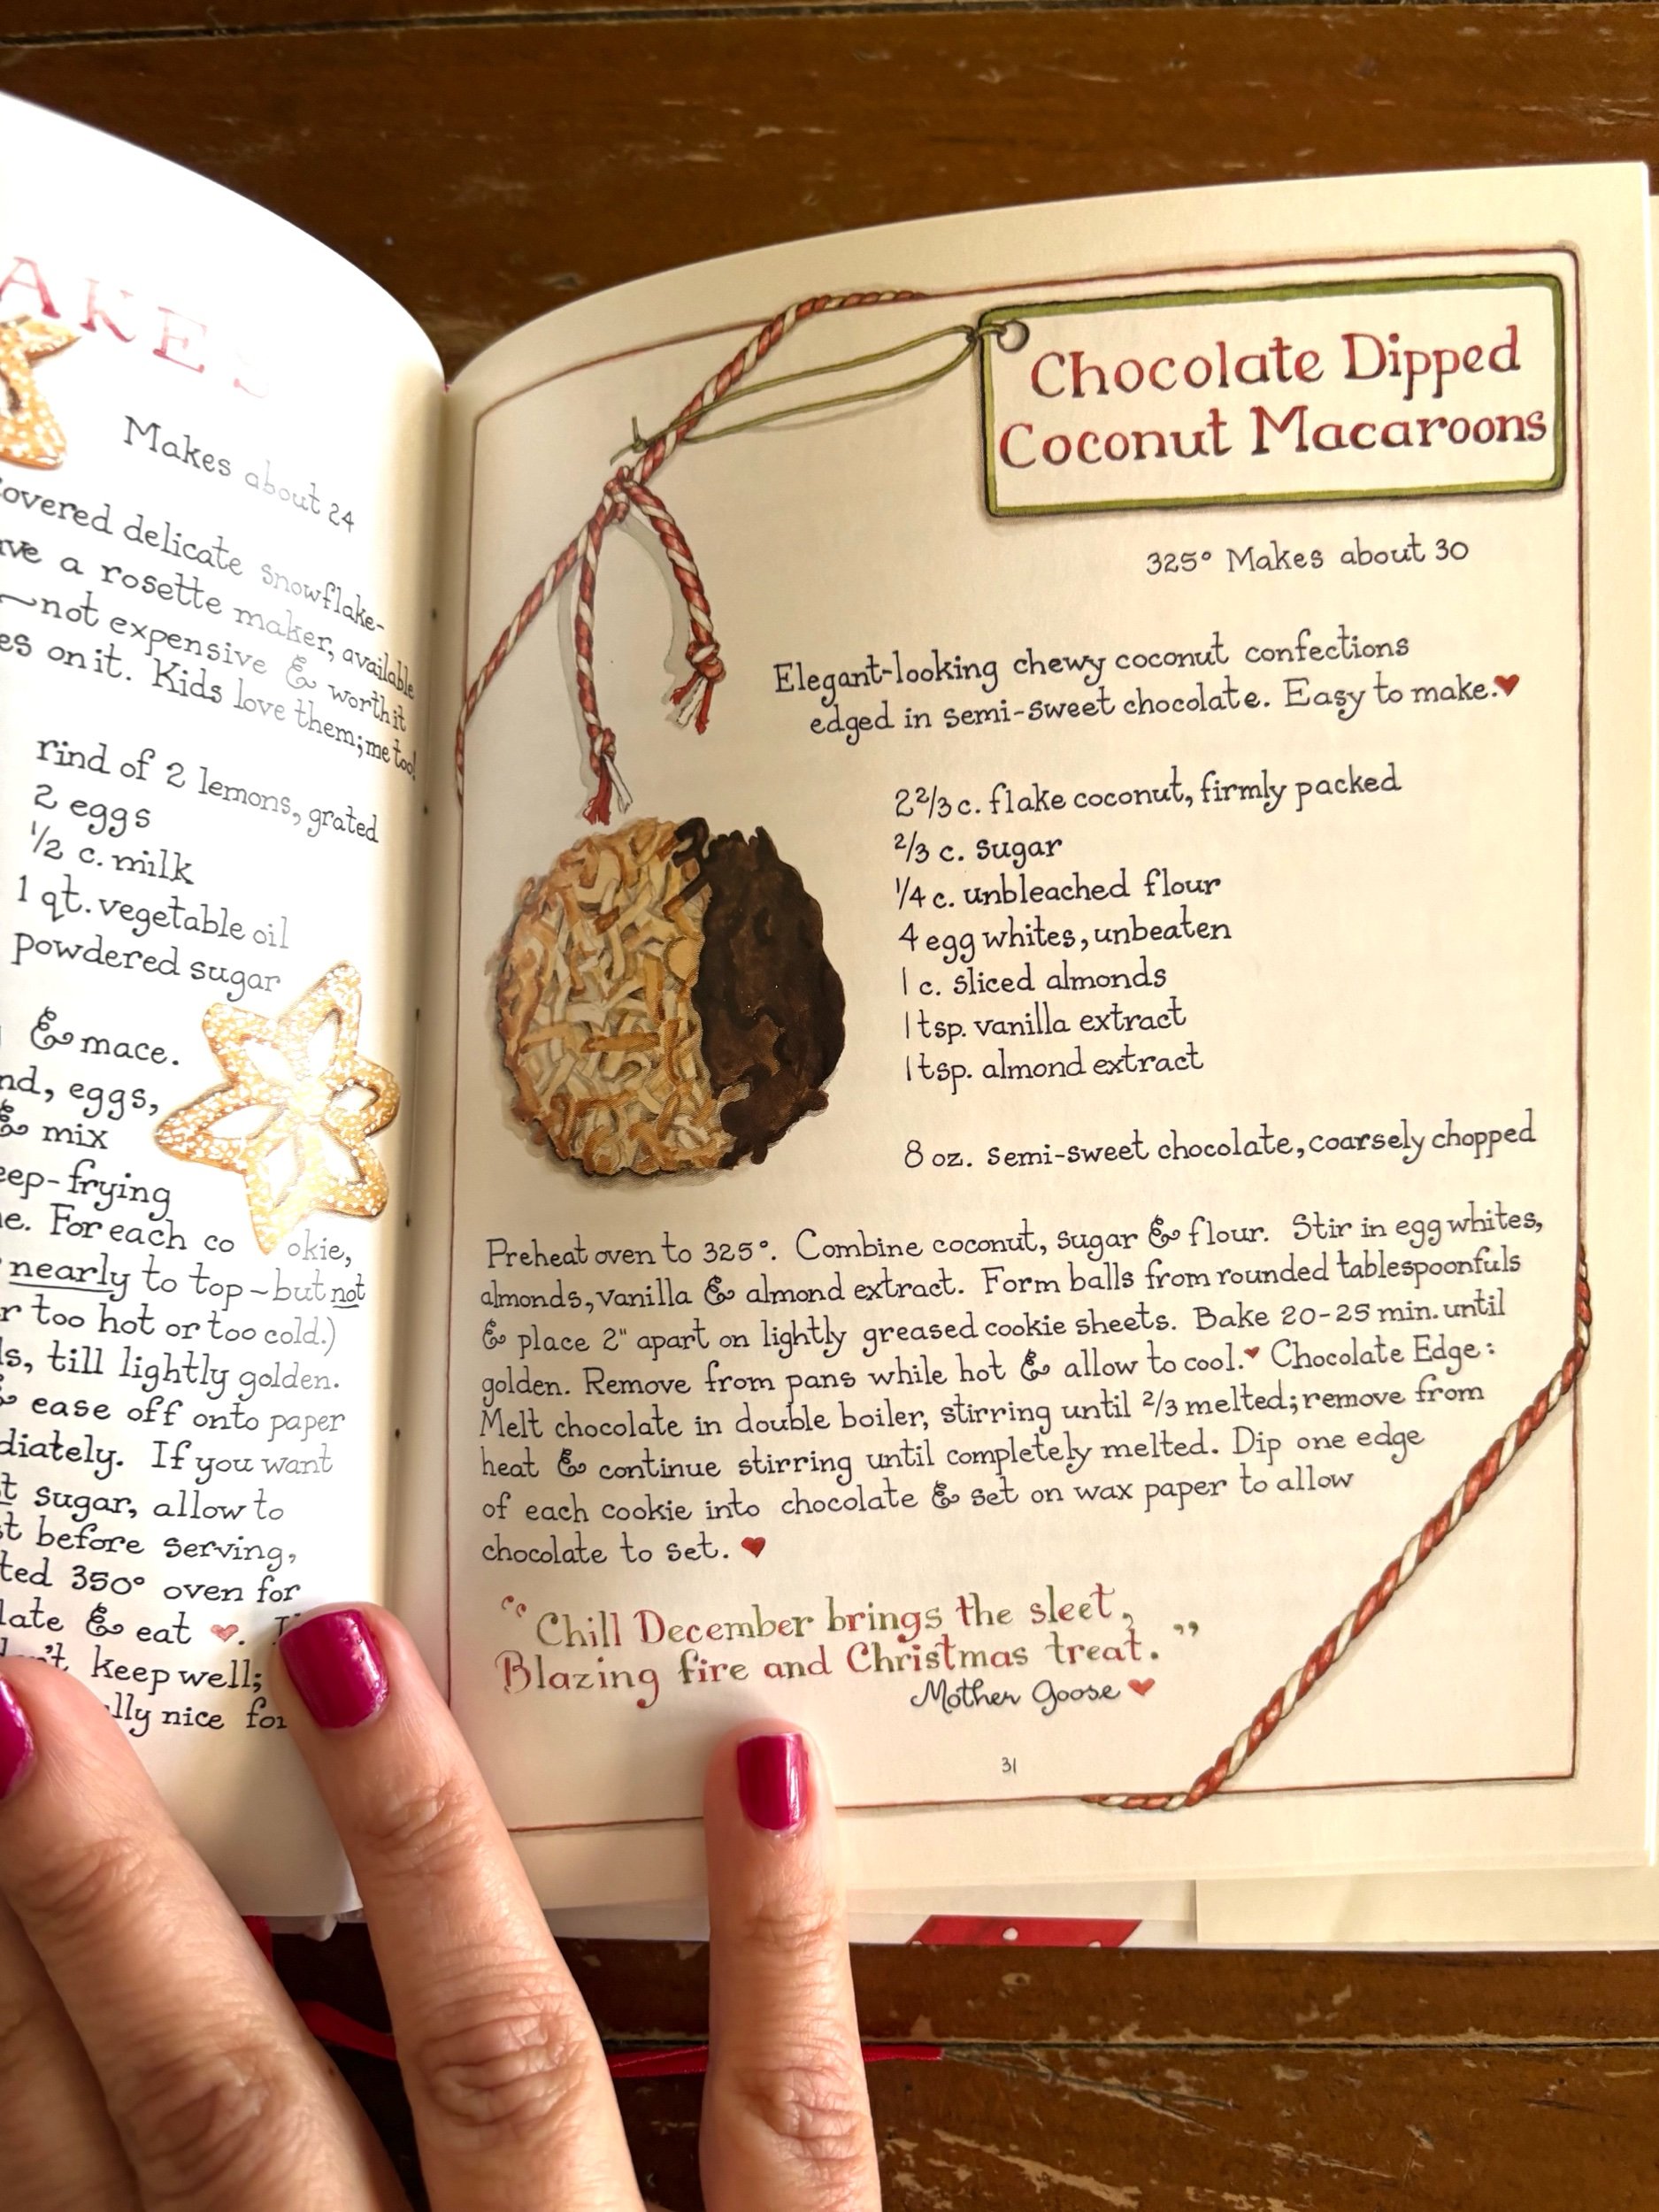 AKES
Makes about 24
covered delicate snowflake-
a rosette maker, available
~not expensive & worth it
on it. Kids love them; me too!
rind of 2 lemons, grated
2 eggs
1/2 c. milk
1 qt. vegetable oil
powdered sugar
& mace.
eggs,
& mix
eep-frying
For each cookie,
nearly to top ~ but not
too hot or too cold.)
till lightly golden.
& ease off onto paper
diately. If you want
sugar, allow to
before serving,
350° oven for
& eat ♥.
keep well;
nice for
Chocolate Dipped
Coconut Macaroons
325° Makes about 30
Elegant-looking chewy coconut confections
edged in semi-sweet chocolate. Easy to make.♥
2 2/3 c. flake coconut, firmly packed
2/3 c. sugar
1/4 c. unbleached flour
4 egg whites, unbeaten
1 c. sliced almonds
1 tsp. vanilla extract
1 tsp. almond extract
8 oz. semi-sweet chocolate, coarsely chopped
Preheat oven to 325°. Combine coconut, sugar & flour. Stir in egg whites,
almonds, vanilla & almond extract. Form balls from rounded tablespoonfuls
& place 2" apart on lightly greased cookie sheets. Bake 20-25 min. until
golden. Remove from pans while hot & allow to cool.♥ Chocolate Edge:
Melt chocolate in double boiler, stirring until 2/3 melted; remove from
heat & continue stirring until completely melted. Dip one edge
of each cookie into chocolate & set on wax paper to allow
chocolate to set. ♥
"Chill December brings the sleet,
Blazing fire and Christmas treat."
Mother Goose ♥
31